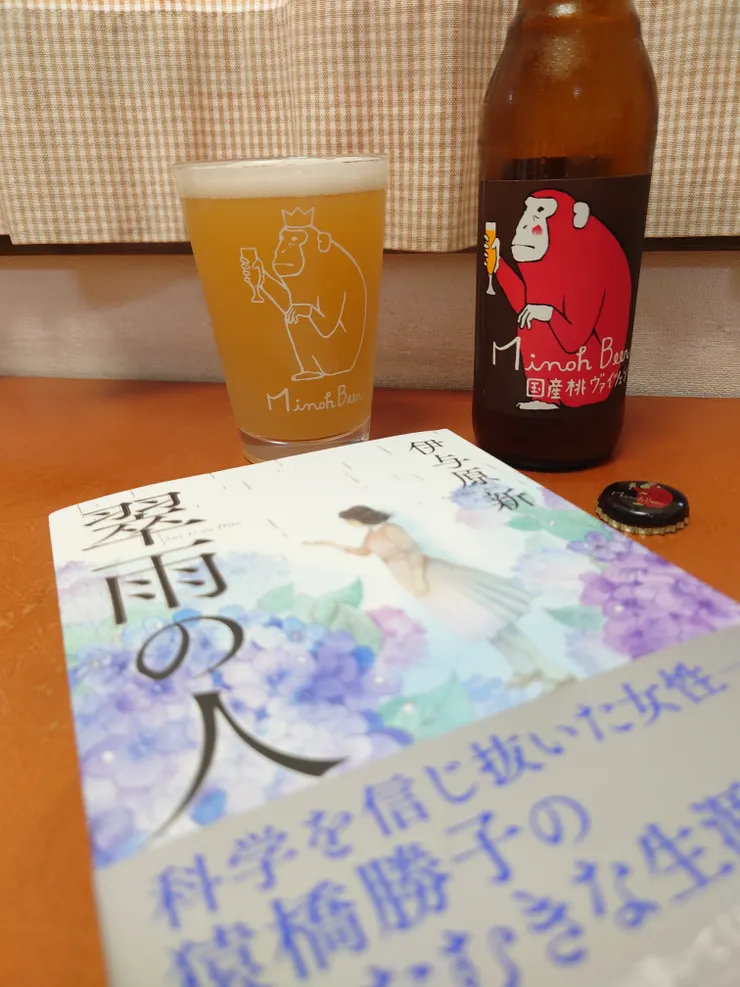 Minoh Beer
Minoh Beer
国産桃ヴァイツェン
伊与原 新
翠雨の人
科学を信じ抜いた女性
猿橋勝子の
たむきな生涯